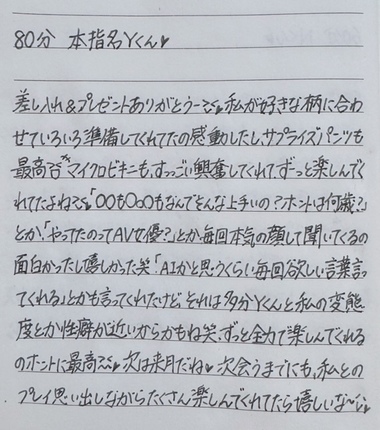 80分 本指名Yくん♥
差し入れ&プレゼントありがとうー 私が好きな柄に合わ
せていろいろ準備してくれてたの感動したし、サプライズパンツも
最高 マイクロビキニも、すっごい興奮してくれて、ずっと楽しんでく
れてたよね 「〇〇も〇〇〇もなんでそんな上手いの?ホントは何歳?」
とか、「やってたのってAV女優?」とか毎回本気の顔して聞いてくるの
面白かったし嬉しかった笑「AIかと思うくらい毎回欲しい言葉言っ
てくれる」とかも言ってくれたけど、それは多分Yくんと私の変態
度とか性癖が近いからかもね笑、ずっと全力で楽しんでくれる
のホントに最高 次は来月だね♥ 次会うまでにも、私との
プレイ思い出しながらたくさん楽しんでくれてたら嬉しいな〜